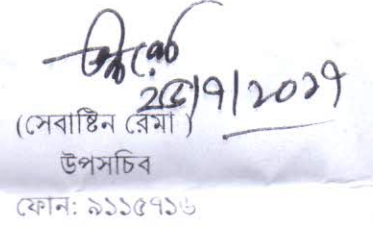 ২৫/৭/২০১৭
(সেবাষ্টিন রেমা )
উপসচিব
ফোন: ৯১১৫৭১৬